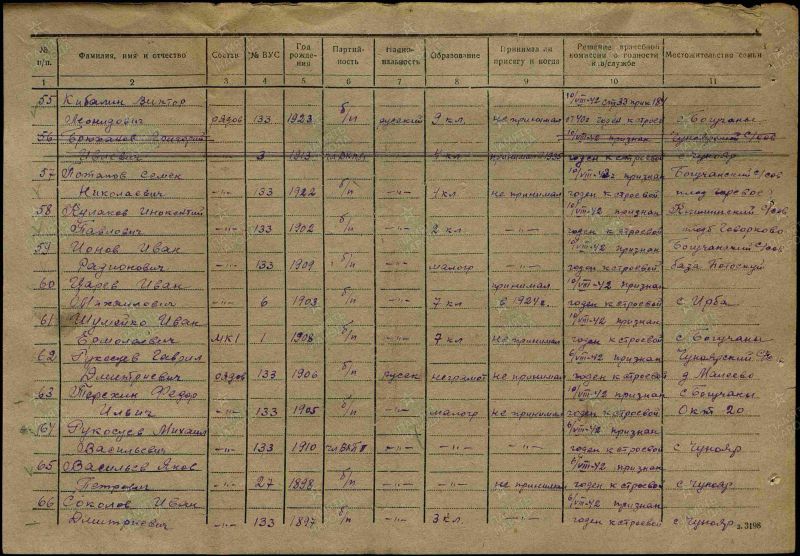 № п/п. Фамилия, имя и отчество Состав № ВУС Год рождения Партийность Национальность Образование Принимал ли присягу и когда Решение врачебной комиссии о годности к в/службе Местожительство семьи
1 2 3 4 5 6 7 8 9 10 11
55 Кибалин Виктор 10/VIII-42 ст 33 прик 184
Леонидович рядов 133 1923 б/п русский 9 кл. не принимал годен к строев с. Богучаны
56 Брюханов Григорий 10/VIII-42 признан Чуноярский С/сов
3 1913 чл ВКПб 4 кл принимал годен к строевой с. Чунояр
57 Потапов Семен 10/VIII-42 признан Богучанский С/сов
Николаевич -"- 133 1922 б/п -"- 4 кл не принимал годен к строевой
58 Кулаков Инокентий 10/VIII-42 признан С/сов
Павлович -"- 133 1902 б/п -"- 2 кл -"- годен к строевой Говорково
59 Ионов Иван 10/VIII-42 признан Богучанский С/сов
Радионович -"- 133 1909 б/п -"- малогр -"- годен к строевой база
60 Царев Иван принимал 10/VIII-42 признан
Михайлович -"- 6 1903 б/п -"- 7 кл в 1924 г. годен к строевой с Ирба
61 Шумейко Иван 10/VIII-42 признан
Ермолаевич МК1 1 1908 б/п -"- 7 кл не принимал годен к строевой с. Богучаны
62 Рукосуев Гаврил 6/VIII-42 признан Чуноярский С/с
Дмитриевич рядов 133 1906 б/п русск неграмот не принимал годен к строевой д. Малеево
63 Терехин Федор 10/VIII-42 признан с Богучаны
Ильич -"- 133 1905 б/п -"- малогр не принимал годен к строевой Окт 20.
64 Рукосуев Михаил 6/VIII-42 признан
Васильевич -"- 133 1910 чл ВКП -"- -"- -"- годен к строевой с Чунояр
65 Васильев Яков 6/VIII-42 признан
Петрович -"- 27 1898 б/п -"- -"- не принимал годен к строевой с Чунояр
66 Соколов Иван 6/VIII-42 признан
Дмитриевич -"- 133 1897 б/п -"- 3 кл. -"- годен к строевой с. Чунояр
з. 3198